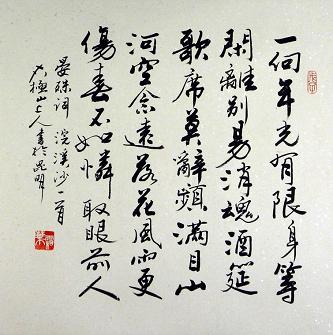 一向年光有限身等
閑離别易消魂酒筵
歌席莫辭頻滿目山
河空念遠落花風雨更
傷春不如憐取眼前人
晏殊詞 浣溪沙一首
極山上人書於昆明